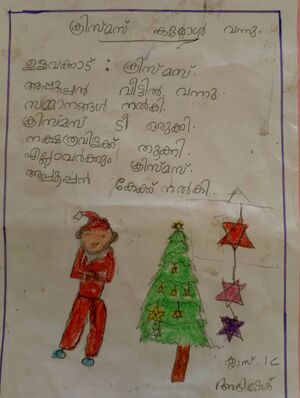 ക്രിസ്മസ് കരോൾ വന്നു.
ഉളവക്കാട് : ക്രിസ്മസ്.
അപ്പൂപ്പൻ വീട്ടിൽ വന്നു.
സമ്മാനങ്ങൾ നൽകി.
ക്രിസ്മസ് ടീ ഒരുക്കി.
നക്ഷത്രവിളക്ക് തൂക്കി.
എല്ലാവർക്കും ക്രിസ്മസ്.
അപ്പൂപ്പൻ കേക്ക് നൽകി.
ക്ലാസ്-1C